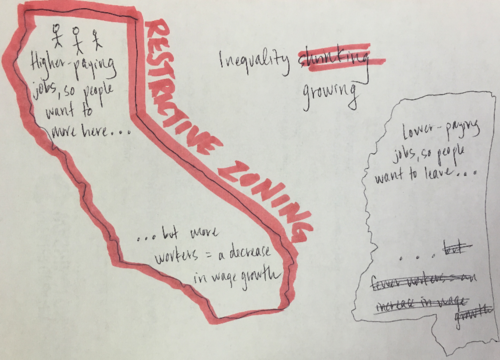 Higher-paying
jobs, so people
want to
move here...
...but more
workers = a decrease
in wage growth
RESTRICTIVE ZONING
Inequality shrinking
growing
Lower-paying
jobs, so people
want to leave...
... but
fewer workers = an
increase in wage
growth